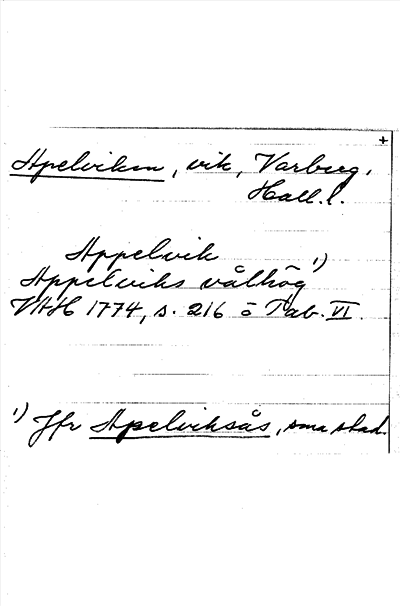 +
Apelviken, vik, Varberg,
Hall. l.
Appelvik
Appelviks vålhög 1)
VHH 1774, s. 216 o Tab. VI.
1) Jfr Apelviksås, sma stad.